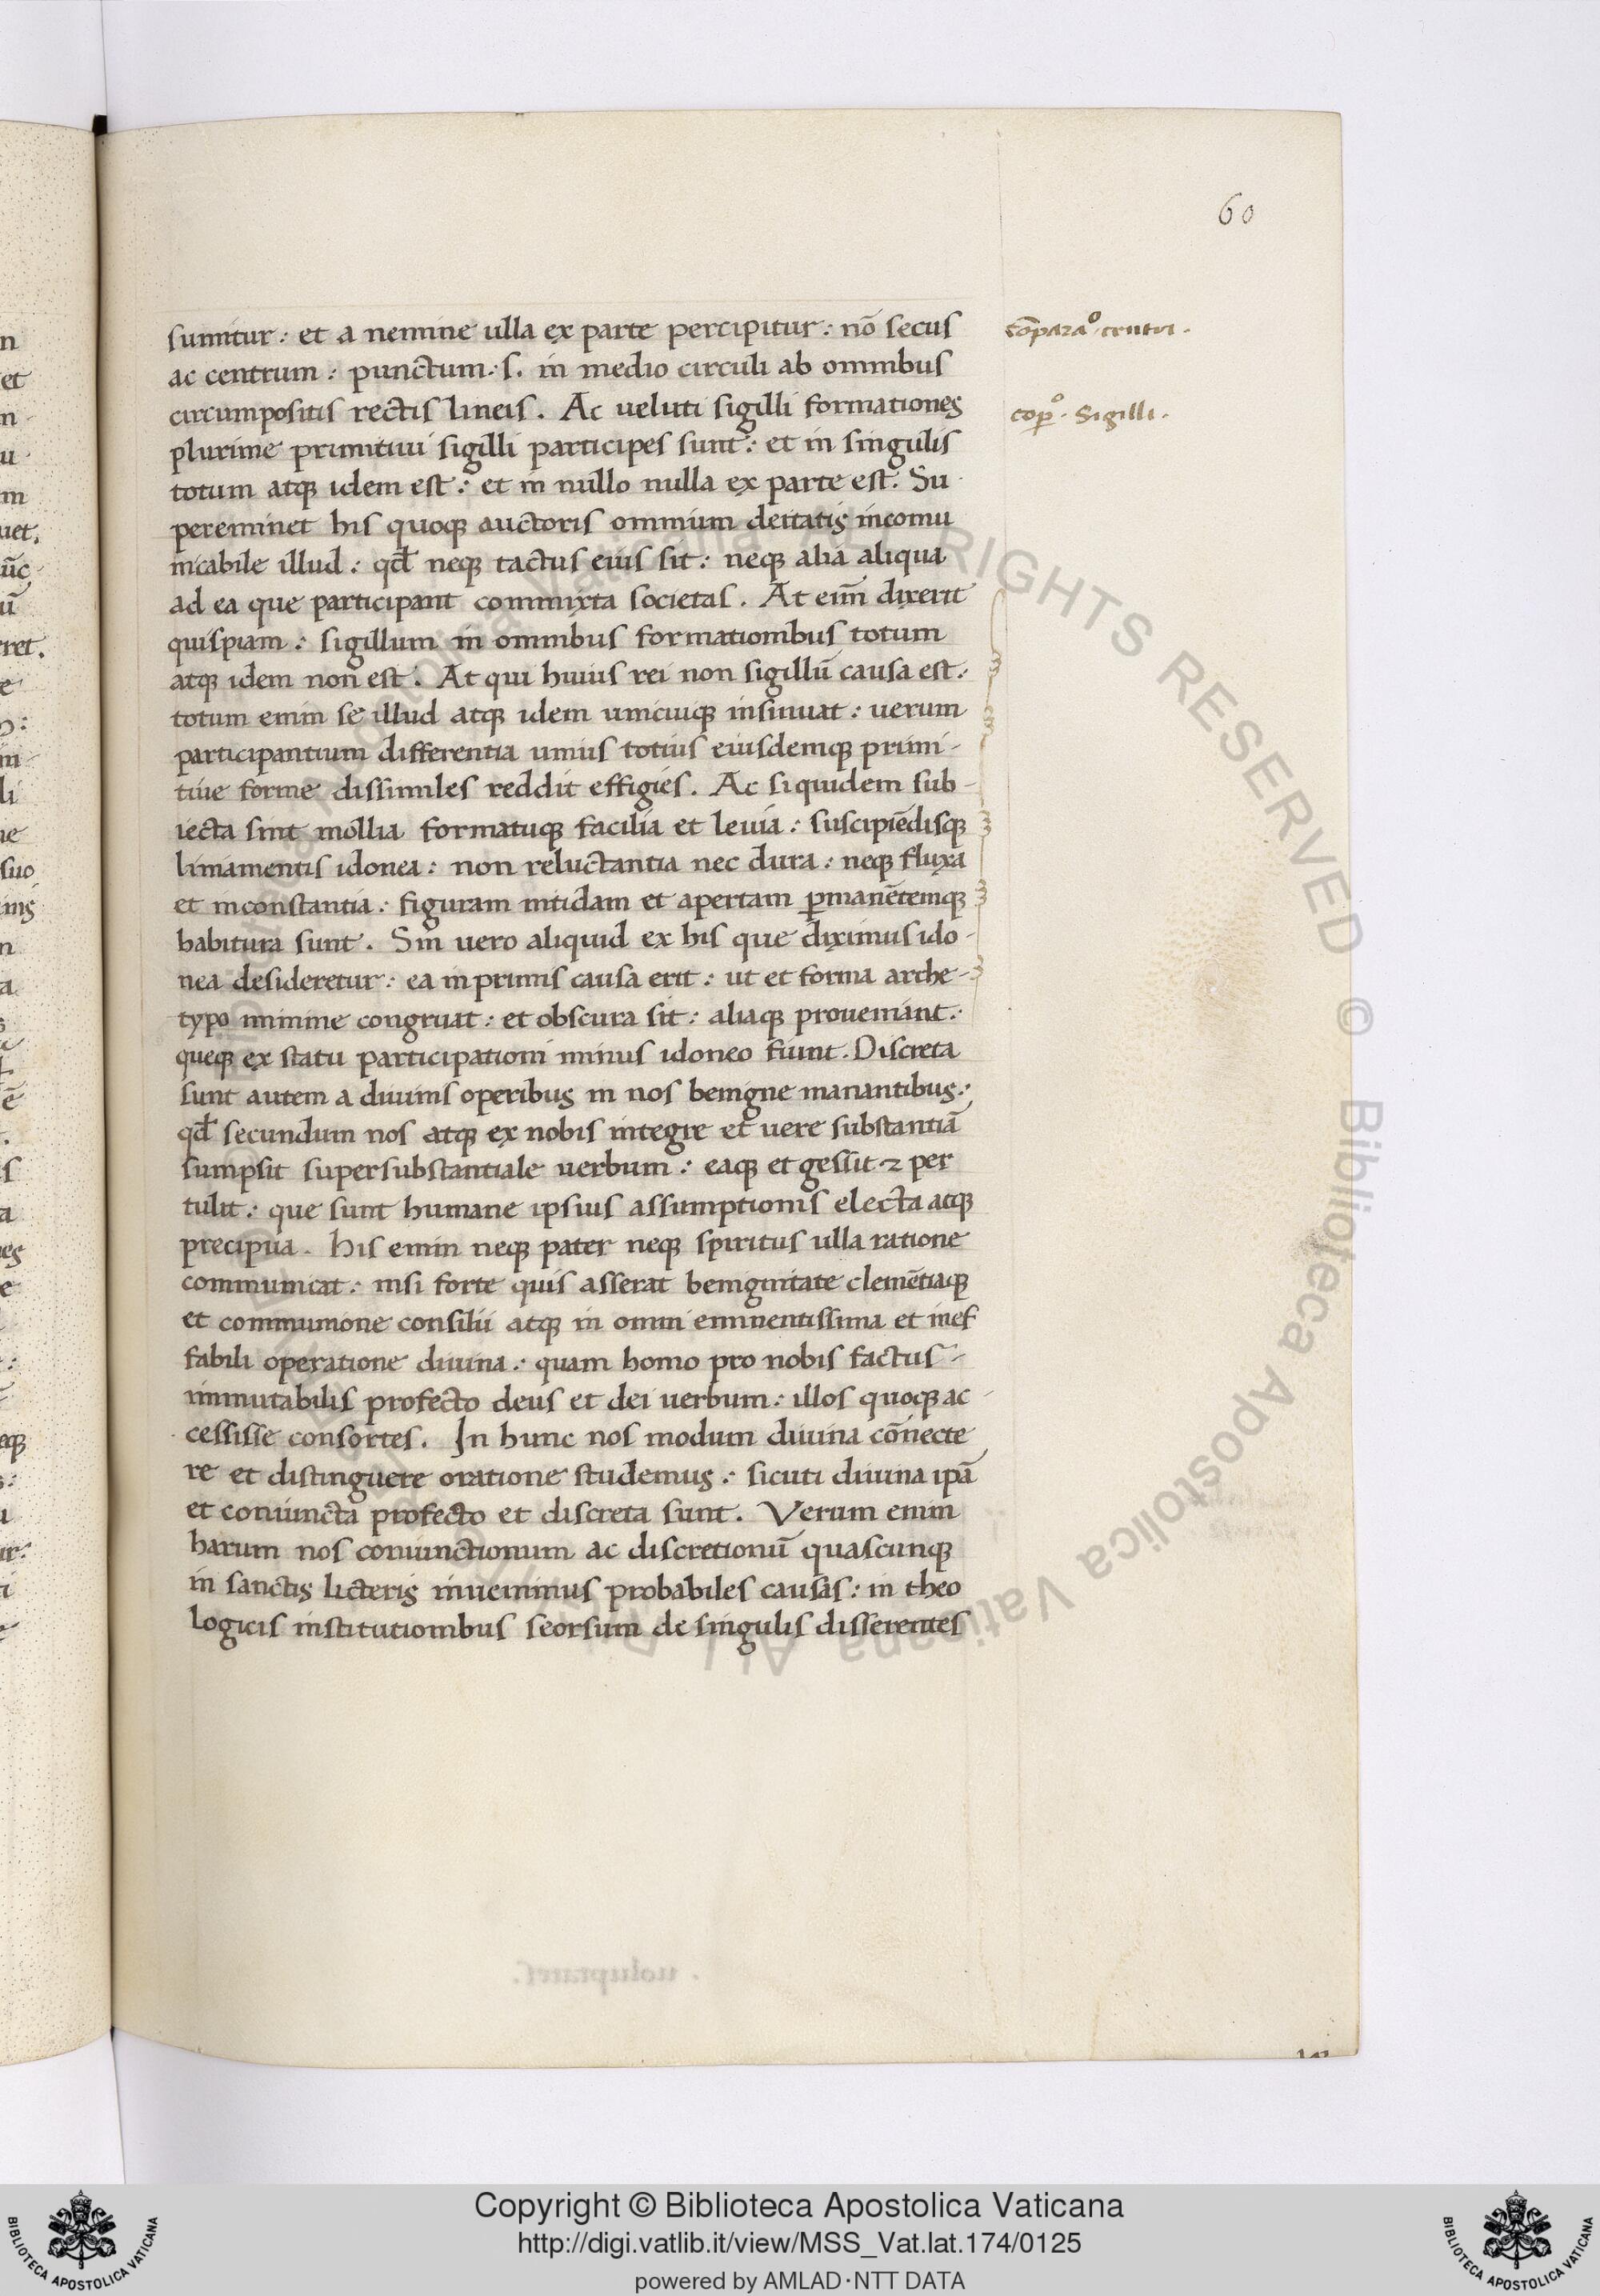 60
sumitur: et a nemine ulla ex parte percipitur: nō secus
comparaº. centri.
ac centrum: punctum .s. in medio circuli ab omnibus
circumpositis rectis lineis. Ac ueluti sigilli formationes
cōpº. Sigilli.
plurime primitiui sigilli participes sunt: et in singulis
totum atqꝫ idem est: et in nullo nulla ex parte est. Su
pereminet his quoqꝫ auctoris omnium deitatis incomu
nicabile illud: qđ neqꝫ tactus eius sit: neqꝫ alia aliqua
ad ea que participant commixta societas. At eim̄ dixerit
quispiam: sigillum in omnibus formationibus totum
atqꝫ idem non est. At qui huius rei non sigillū causa est:
totum enim se illud atqꝫ idem unicuiqꝫ insinuat: uerum
participantium differentia unius totius eiusdemqꝫ primi-
tiue forme dissimiles reddit effigies. Ac siquidem sub-
iecta sint mollia formatuqꝫ facilia et leuia: suscipiēdisqꝫ
linamentis idonea: non reluctantia nec dura: neqꝫ fluxa
et inconstantia: figuram nitidam et apertam ꝑmanētemqꝫ
habitura sunt. Sin uero aliquid ex his que diximus ido-
nea desideretur: ea inprimis causa erit: ut et forma arche-
typo minime congruat: et obscura sit: aliaqꝫ proueniant:
queqꝫ ex statu participationi minus idoneo fiunt. Discreta
sunt autem a diuinis operibus in nos benigne manantibus:
qđ secundum nos atqꝫ ex nobis integre et uere substantiā
sumpsit supersubstantiale uerbum: eaqꝫ et gessit ⁊ per
tulit: que sunt humane ipsius assumptionis electa atqꝫ
precipua. His enim neqꝫ pater neqꝫ spiritus ulla ratione
communicat: nisi forte quis asserat benignitate clemētiaqꝫ
et communione consilii atqꝫ in omni eminentissima et inef
fabili operatione diuina: quam homo pro nobis factus-
inmutabilis profecto deus et dei uerbum: illos quoqꝫ ac-
cessisse consortes. In hunc nos modum diuina cōnecte
re et distinguere oratione studemus: sicuti diuina ipā
et coniuncta profecto et discreta sunt. Verum enim
harum nos coniunctionum ac discretionū quascunqꝫ
in sanctis licteris inuenimus probabiles causas: in theo
logicis institutionibus seorsum de singulis disserentes
. uoluptates.
Copyright © Biblioteca Apostolica Vaticana
http://digi.vatlib.it/view/MSS_Vat.lat.174/0125
powered by AMLAD·NTT DATA
BIBLIOTECA APOSTOLICA VATICANA
BIBLIOTECA APOSTOLICA VATICANA